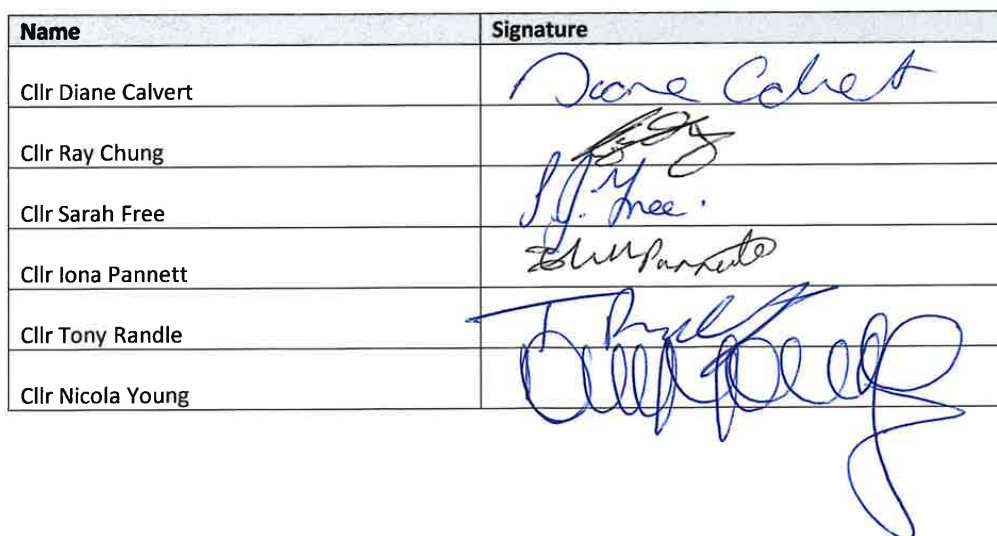 Name Signature
Cllr Diane Calvert Diane Calvert
Cllr Ray Chung
Cllr Sarah Free S.J. Free.
Cllr Iona Pannett Pannett
Cllr Tony Randle T
Cllr Nicola Young